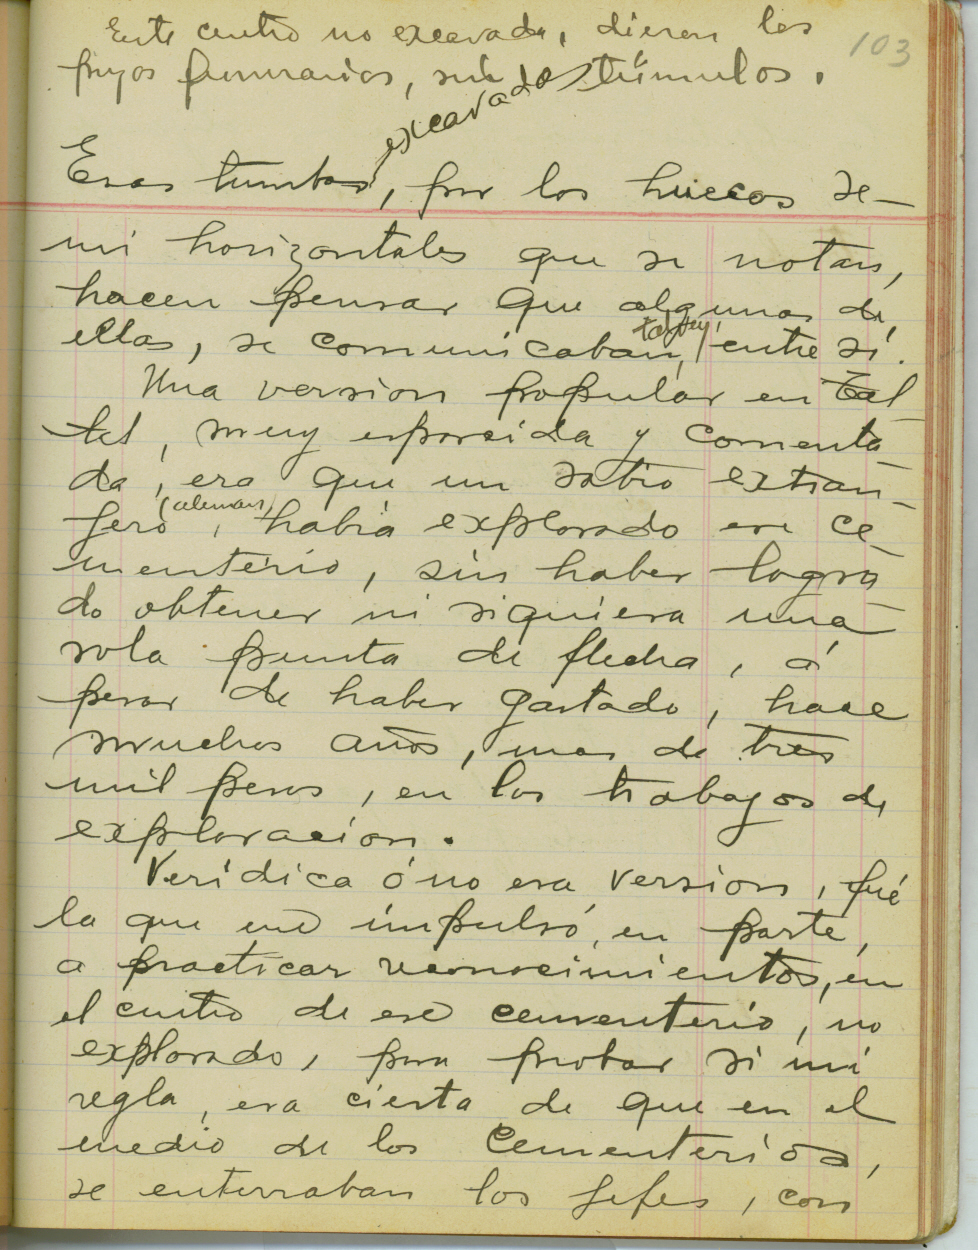 103
Este centro no excavado, dieron los
fuyos funerarios, sub túmulos.
excavados
Esas tumbas, por los huecos se-
mi horizontales que se notan,
hacen pensar que algunas de
ellas, se comunicaban, talvez, entre sí.
Una version popular en Tal-
tal, muy esparcida y comenta-
da, era que un sabio extran-
jero (aleman), habia explorado ese ce-
menterio, sin haber logra-
do obtener ni siquiera una
sola punta de flecha, á
pesar de haber gastado, hace
muchos años, mas de tres
mil pesos, en los trabajos de
exploracion.
Verídica ó no esa version, fué
la que me impulsó, en parte,
a practicar reconocimientos, en
el centro de ese cementerio, no
explorado, para probar si mi
regla, era cierta de que en el
medio de los Cementerios,
se enterraban los jefes, con